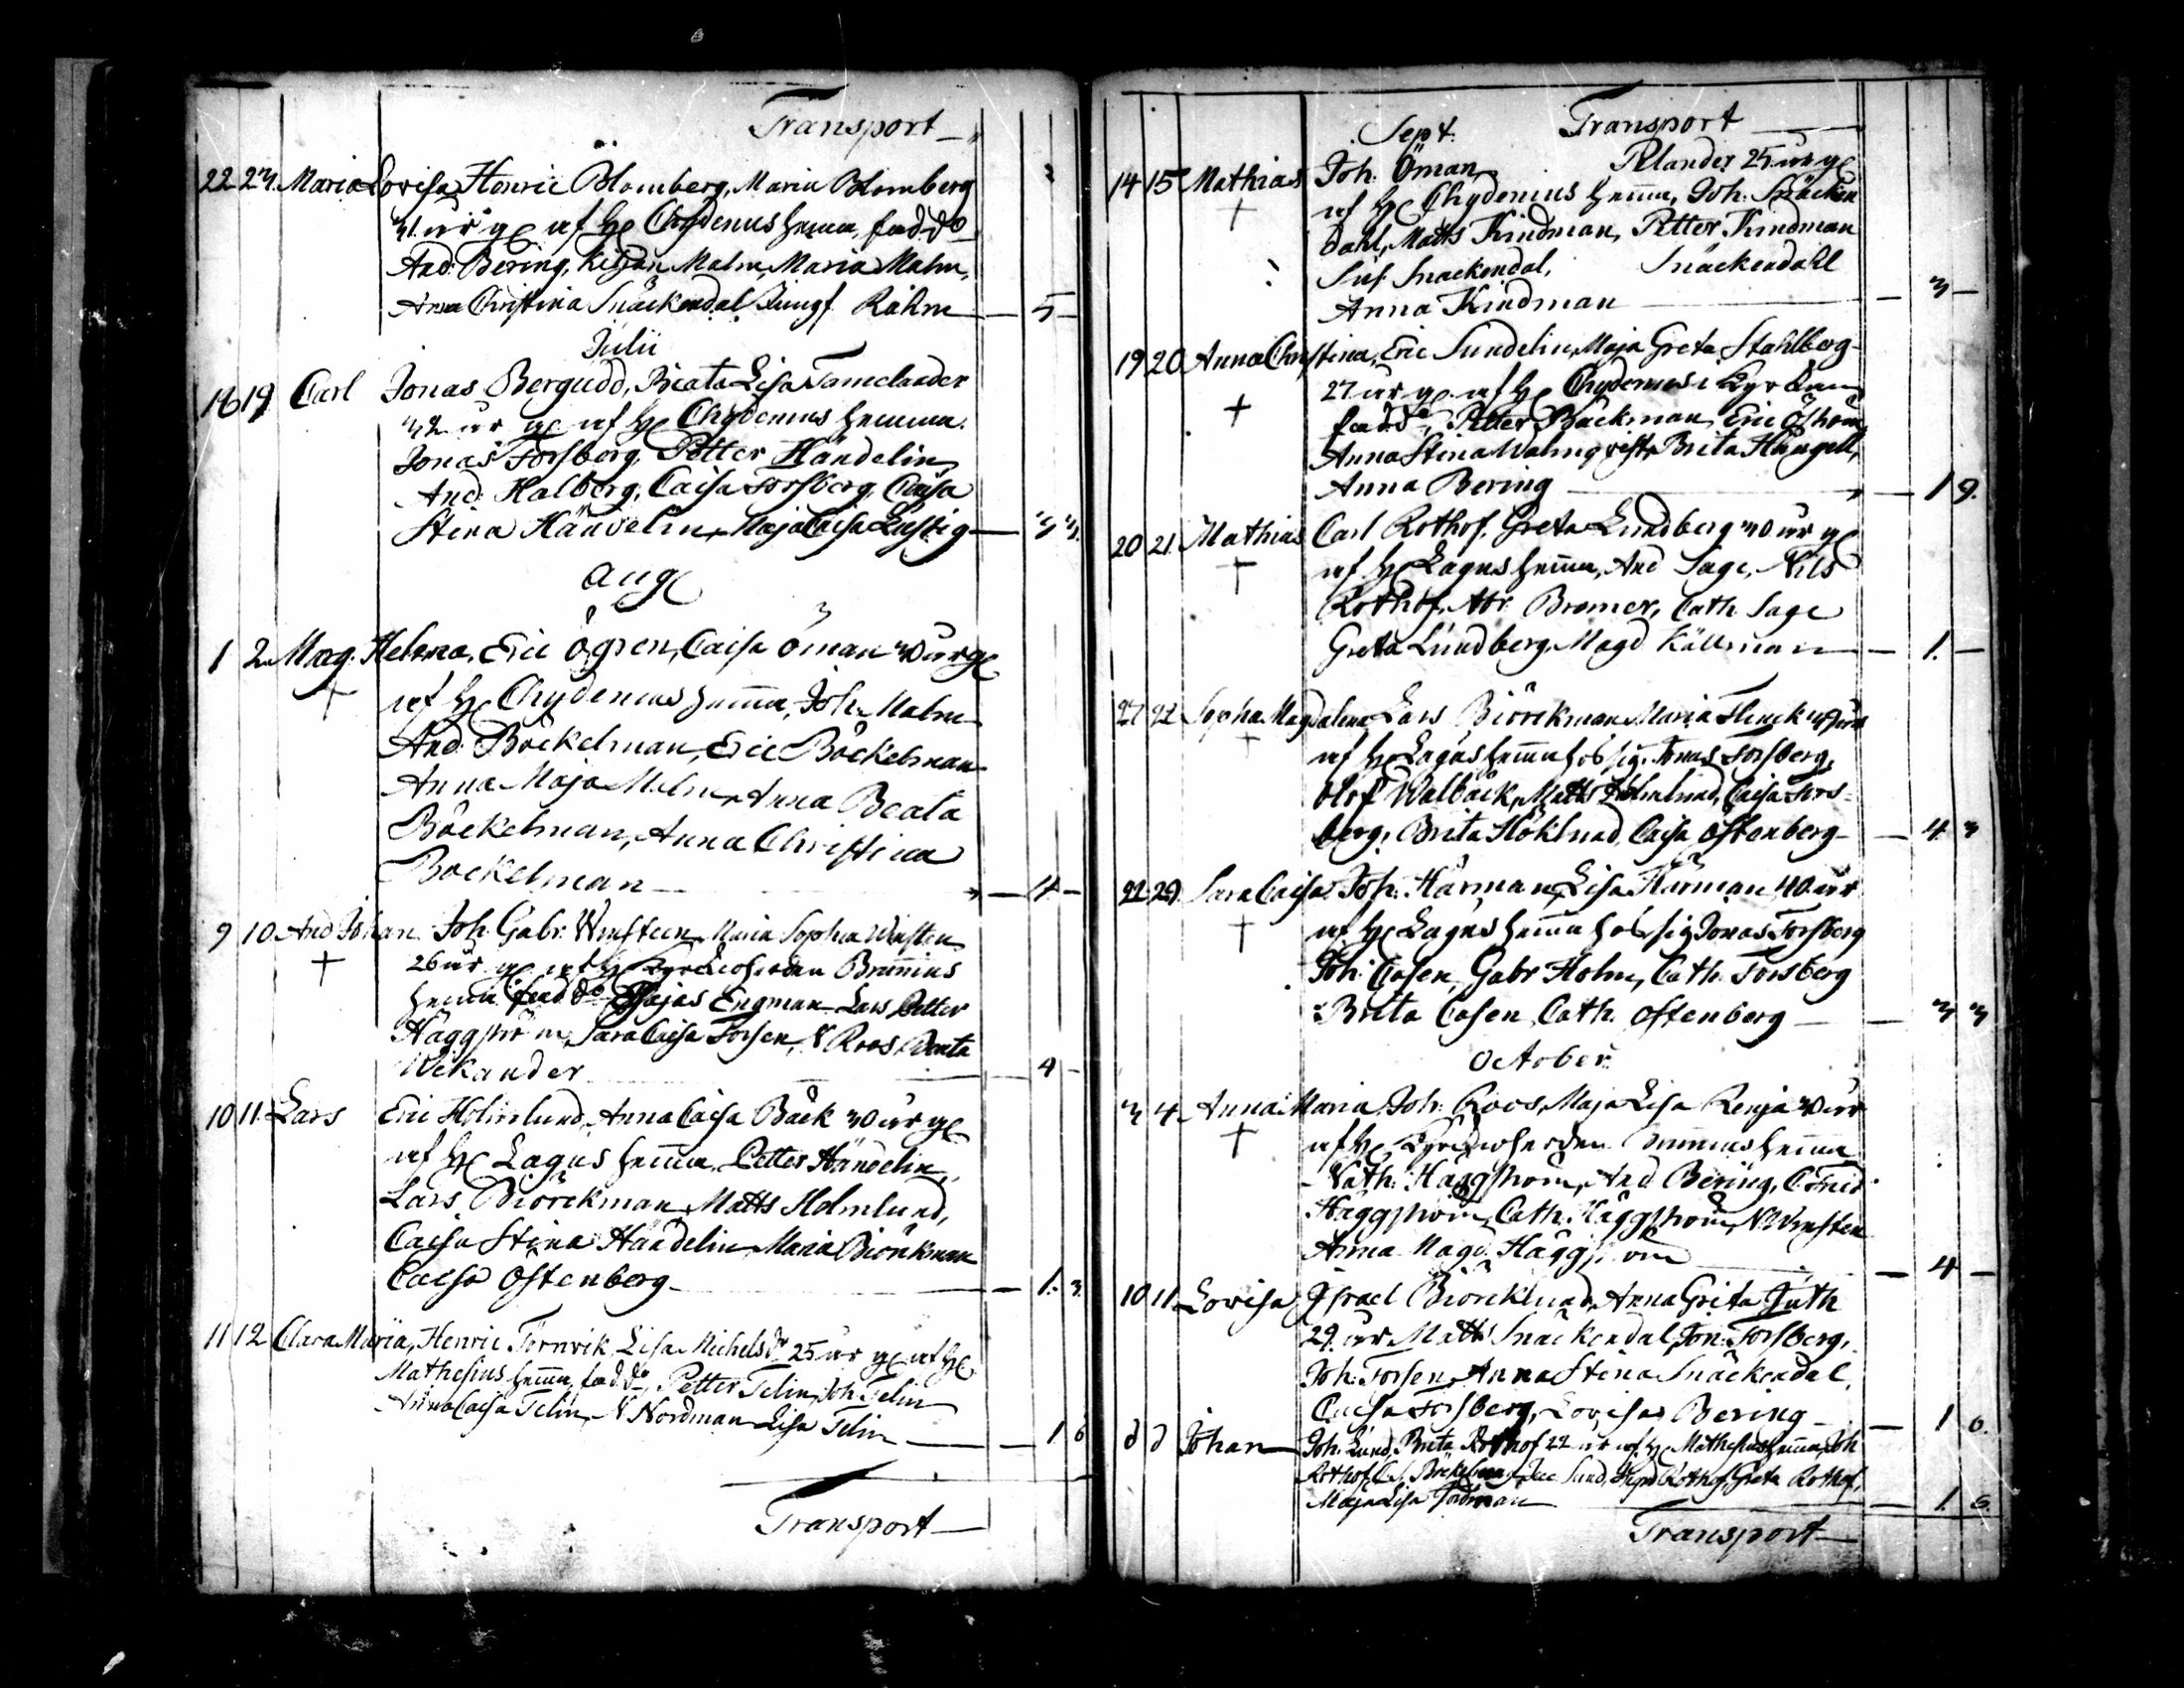 Transport
22 23. Maria Lovisa Henric Blomberg, Maria Blomberg
31 år g af H Chydenius hemma, fadd:
And: Bering, Kitjan Malm, Maria Malm,
Anna Christina Snäckendal Jungf Rahm — 5 —
Julii
18 19 Carl Jonas Bergudd, Beata Lisa Tamelander
32 år g af H Chydenius hemma.
Jonas Forsberg, Petter Händelin,
And: Halberg, Caisa Forsberg, Caisa
Stina Händelin, Maja Caisa Lustig — 3 3.
Aug
1 2 Mag: Helena, Eric Ögren, Caisa Öman 30 år g
af H Chydenius hemma, Joh: Malm
And: Böckelman, Eric Böckelman
Anna Maja Malm, Anna Beata
Böckelman, Anna Christina
Bockelman — 4 —
9 10. And Johan Joh: Gabr: Winsteen, Maria Sophia Winsten
26 år g af H Kyrkioherden Brunnius
hemma fadd: Esajas Engman Lars Petter
Häggström, Sara Caisa Forsen, N Roos, Beata
Wikander — 4 —
10 11. Lars Eric Holmlund, Anna Caisa Bäck 30 år g
af H Lagus hemma, Petter Händelin,
Lars Biörckman, Matts Holmlund,
Caisa Stina Händelin, Maria Biörkman
Caisa Ostenberg — 1. 3.
11 12 Clara Maria, Henric Törnvik, Lisa Michelsdr 25 år g af H
Mathesius hemma, fadd: Petter Telin, Joh: Telin
Anna Caisa Telin, N Nordman Lisa Telin — 1 6
Transport
Sept. Transport
14 15 Mathias Joh: Öman, Pelander 25 år g
af H Chydenius hemma, Joh: Snäcken
dahl, Matts Kindman, Petter Kindman
Sus: Snackendal, Snäckendahl
Anna Kindman — 3 —
19 20 Anna Christina, Eric Sundelin, Maja Greta Stahlberg
27 år g af H Chydenius i Kyrkan
fadd: Petter Bäckman, Eric Öström
Anna Stina Malmqvist, Brita Hängell,
Anna Bering — 1 9.
20 21. Mathias Carl Rothof, Greta Lundberg 30 år g
af H Lagus hemma, And Sage, Nils
Rothof, Abr: Bromer, Cath: Sage
Greta Lundberg, Magd Källman — 1. —
21 22 Sopha Magdalena Lars Biörckman Maria Flinck år
af H Lagus hemma hos sig. Jonas Forsberg,
Olof Walbäck, Matts Holmlund, Caisa Fors-
berg, Brita Höklund, Caisa Ostenberg — 4 3
22 23. Sara Caisa Joh: Härman, Lisa Härman 40 år
af H Lagus hemma hos sig Jonas Forsberg
Joh: Casen, Gabr Holm, Cath: Forsberg
Brita Casen Cath: Ostenberg — 3 3
October
3 4 Anna Maria Joh: Roos, Maja Lisa Renja 30 år
af H Kyrkioherden Brunnius hemma
Nath: Häggström, And Bering, C Fried
Häggström, Cath: Häggström, N Winsten
Anna Magd: Häggström — 4 —
10 11 Lovisa Israel Biörcklund, Anna Greta Juth
29 år Matts Snäckendal, Jon: Forsberg,
Joh: Forsen, Anna Stina Snäckendal,
Caisa Forsberg, Lovisa Bering — 1 6.
d d Johan Joh: Lund, Brita Rothof 22 år af H Mathesius hemma, Joh
Rothof, Böckelman, Lund, Rothof, Greta Rothof,
Maja Lisa — 1. 6.
Transport